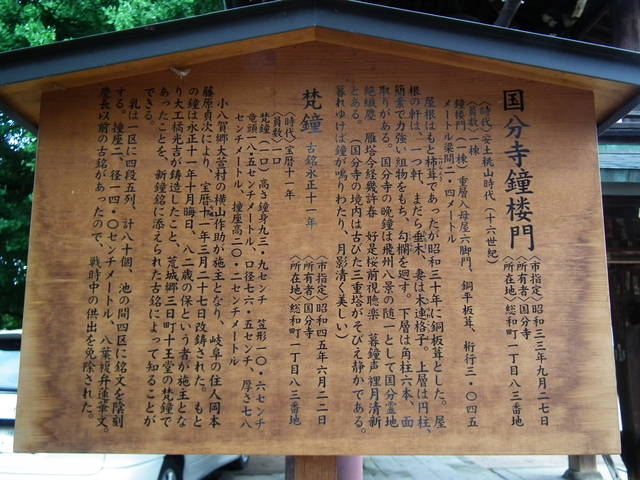 国分寺鐘楼門
〈市指定〉昭和三三年九月二七日
〈所有者〉国分寺
〈所在地〉総和町一丁目八三番地
〈時代〉安土桃山時代（十六世紀）
〈員数〉一棟
鐘楼門（一棟）重層入母屋六脚門、銅平板葺、桁行三・〇四五
メートル梁間二・四メートル
屋根はもと杮葺であったが昭和三十年に銅板葺とした。屋
根の軒は、一つ軒、まだら垂木、妻は木連格子。上層は円柱、
簡素で力強い組物をもち、勾欄を廻す。下層は角柱六本、面
取りがある。国分寺の晩鐘は飛州八景の随一として国分霊地
絶纖塵 雁塔今経幾許春 好是桜前視聴楽 暮鐘声裡月清新
とある。（国分寺の境内は古びた三重塔がそびえ静かである。
暮れゆけば鐘が鳴りわたり、月影清く美しい）
梵鐘 古銘永正十一年
〈市指定〉昭和四五年六月二二日
〈所有者〉国分寺
〈所在地〉総和町一丁目八三番地
〈時代〉宝暦十一年
〈員数〉一口
梵鐘（一口）高さ鐘身九三・九センチ 笠形一〇・六センチ
竜頭一七・五センチメートル、口径七六・五センチ、厚さ七八
センチメートル、撞座高二〇・二センチメートル
小八賀郷大萱村の横山作助が施主となり、岐阜の住人岡本
藤原貞次により、宝暦十一年三月二十七日改鋳された。もと
の鐘は永正十一年十月晦日、八二歳の保という者が施主とな
り大工橘光吉が鋳造したこと、荒城郷三日町十王堂の梵鐘で
あったことを、新鐘銘に添えられた古銘によって知ることが
できる。
乳は一区に四段五列、計八十個、池の間四区に銘文を陰刻
する。撞座二、径一四・〇センチメートル、八葉複弁蓮華文。
慶長以前の古銘があったので、戦時中の供出を免除された。